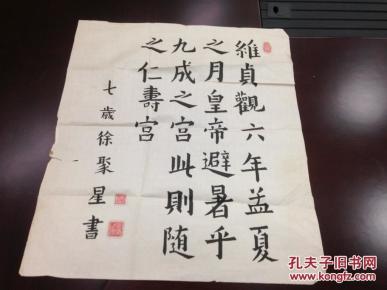 維貞觀六年孟夏
之月皇帝避暑乎
九成之宮此則随
之仁壽宮
七歲徐聚星書
孔夫子旧书网